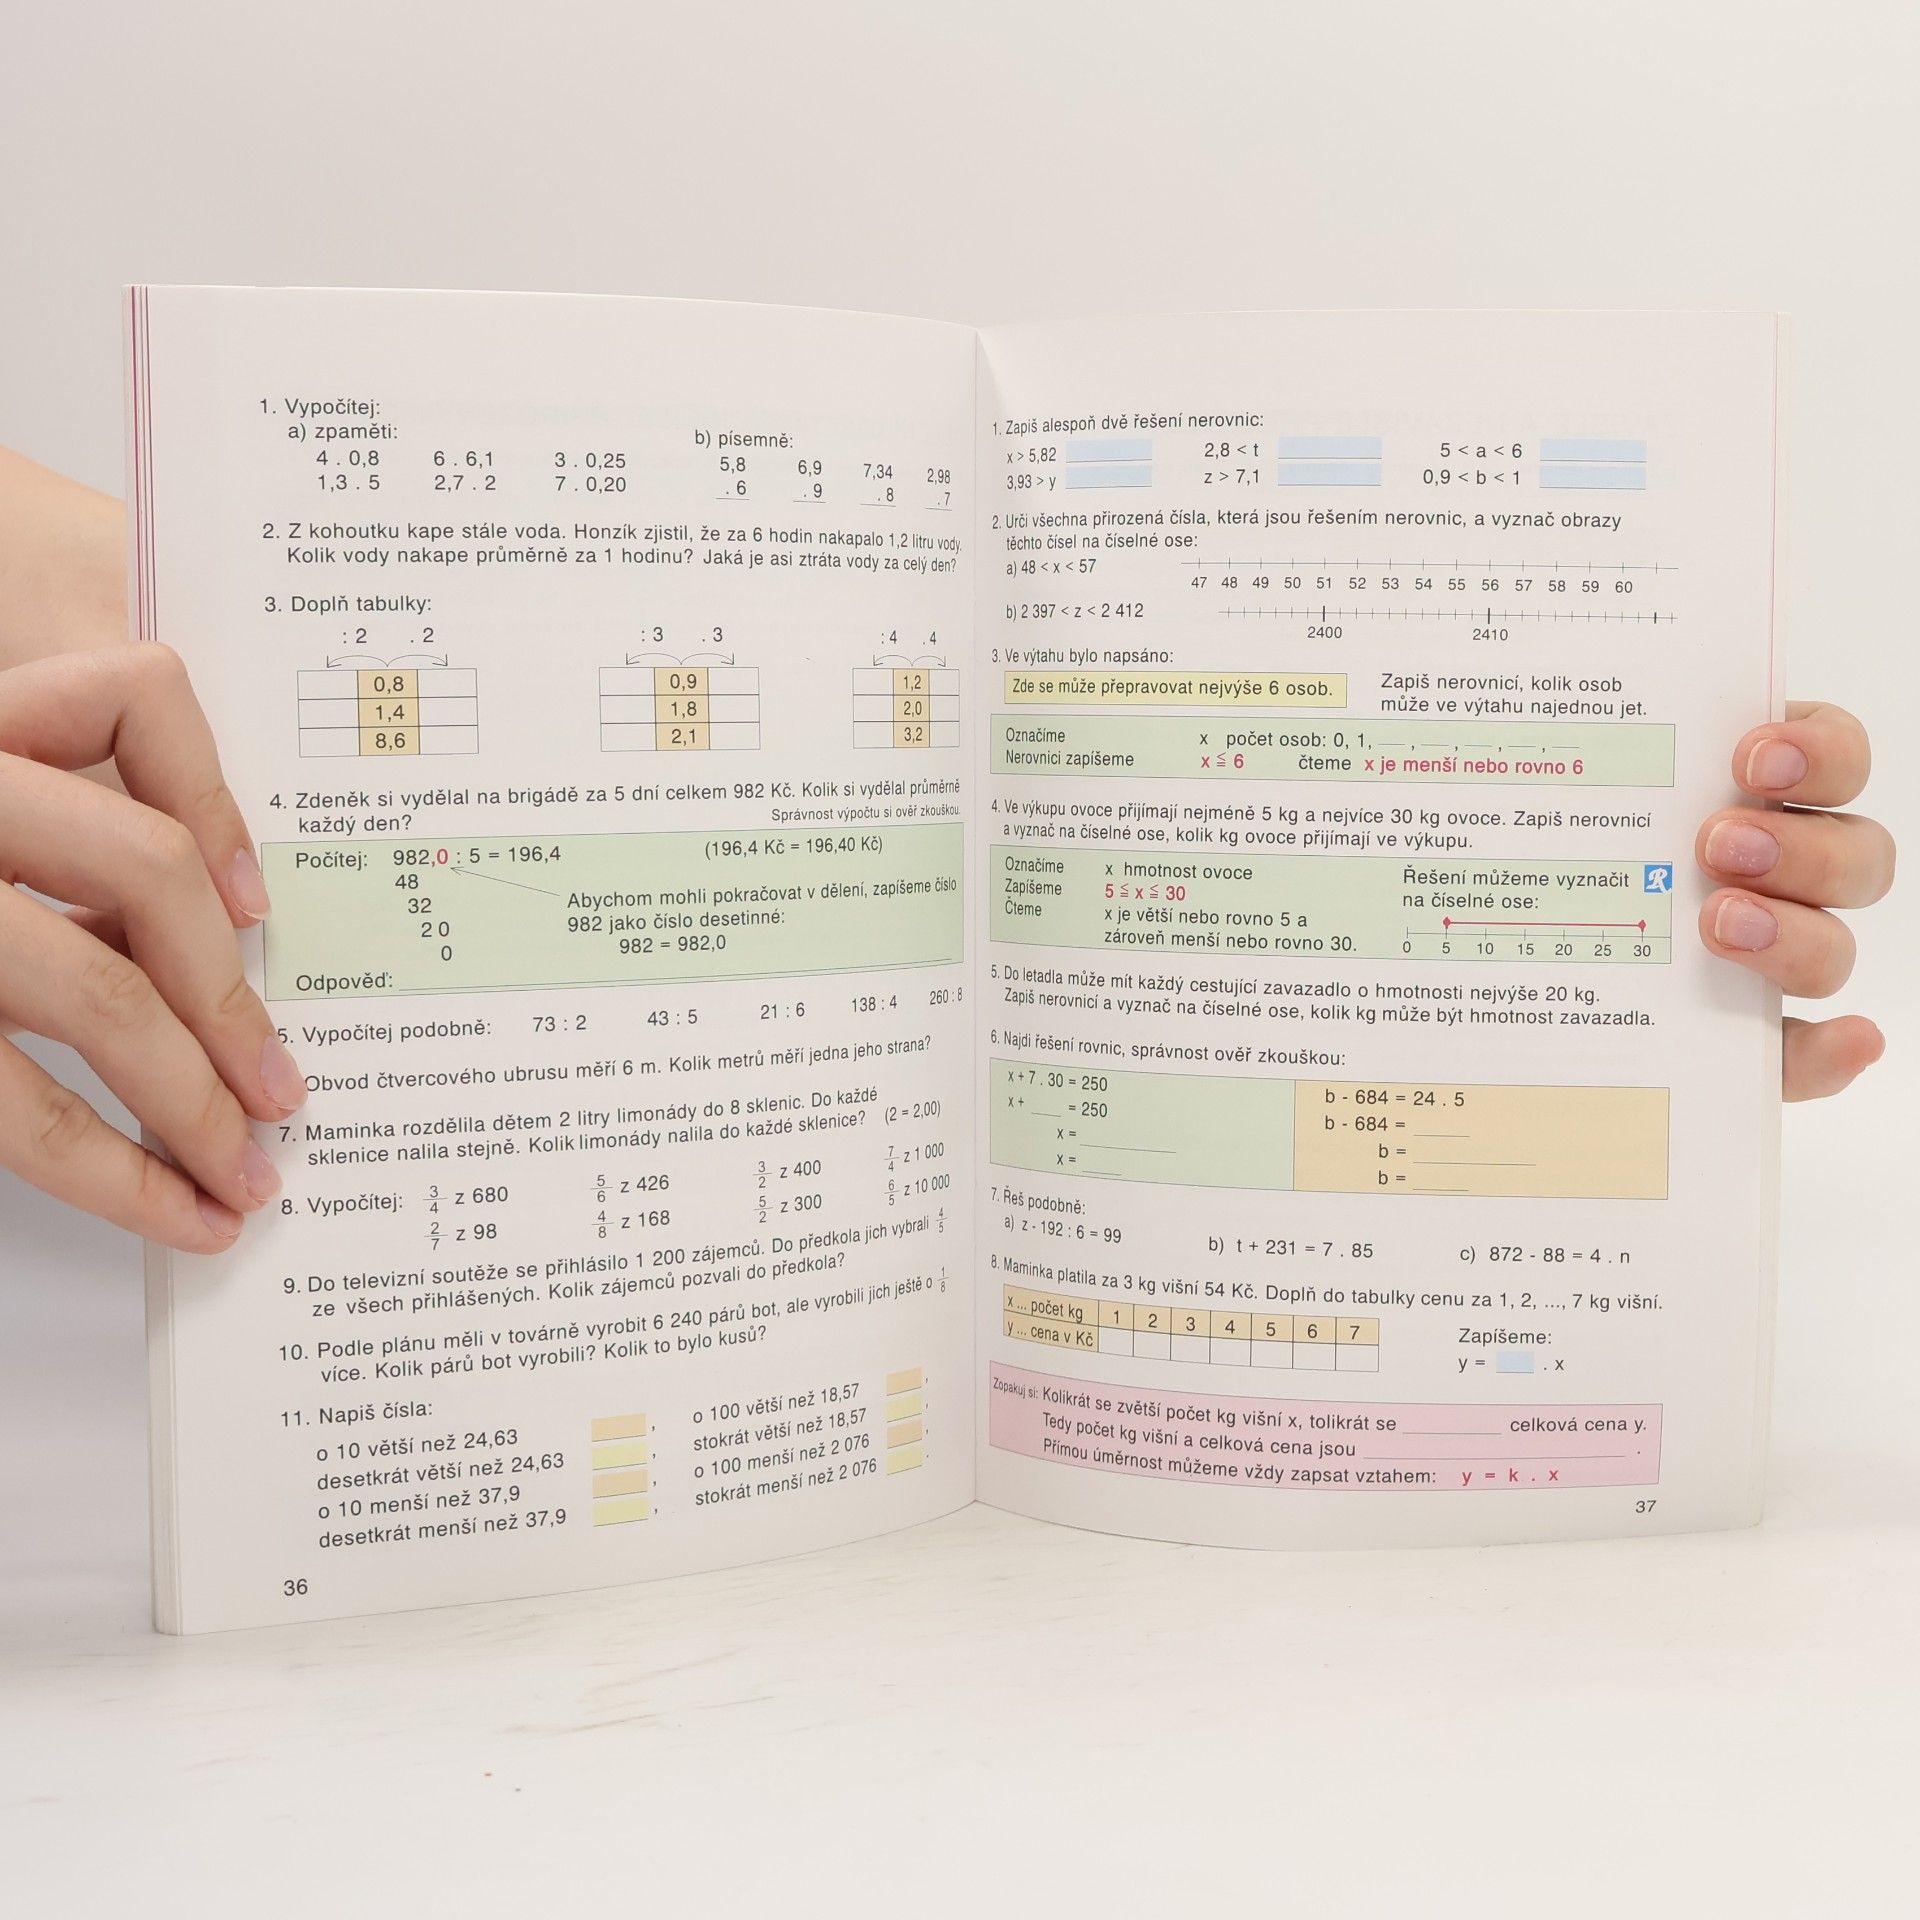 1. Vypočítej:
a) zpaměti:
4 . 0,8 6 . 6,1 3 . 0,25
1,3 . 5 2,7 . 2 7 . 0,20
b) písemně:
5,8 6,9 7,34 2,98
. 6 . 9 . 8 . 7
2. Z kohoutku kape stále voda. Honzík zjistil, že za 6 hodin nakapalo 1,2 litru vody.
Kolik vody nakape průměrně za 1 hodinu? Jaká je asi ztráta vody za celý den?
3. Doplň tabulky:
: 2 . 2 : 3 . 3 : 4 . 4
0,8 0,9 1,2
1,4 1,8 2,0
8,6 2,1 3,2
4. Zdeněk si vydělal na brigádě za 5 dní celkem 982 Kč. Kolik si vydělal průměrně
každý den? Správnost výpočtu si ověř zkouškou.
Počítej: 982,0 : 5 = 196,4 (196,4 Kč = 196,40 Kč)
48
32
2 0
0
Abychom mohli pokračovat v dělení, zapíšeme číslo
982 jako číslo desetinné:
982 = 982,0
Odpověď:
5. Vypočítej podobně: 73 : 2 43 : 5 21 : 6 138 : 4 260 : 8
Obvod čtvercového ubrusu měří 6 m. Kolik metrů měří jedna jeho strana?
7. Maminka rozdělila dětem 2 litry limonády do 8 sklenic. Do každé
sklenice nalila stejně. Kolik limonády nalila do každé sklenice? (2 = 2,00)
8. Vypočítej: 3/4 z 680 5/6 z 426 3/2 z 400 7/4 z 1 000
2/7 z 98 4/8 z 168 5/2 z 300 6/5 z 10 000
9. Do televizní soutěže se přihlásilo 1 200 zájemců. Do předkola jich vybrali 4/5
ze všech přihlášených. Kolik zájemců pozvali do předkola?
10. Podle plánu měli v továrně vyrobit 6 240 párů bot, ale vyrobili jich ještě o 1/8
více. Kolik párů bot vyrobili? Kolik to bylo kusů?
11. Napiš čísla:
o 10 větší než 24,63 ,
desetkrát větší než 24,63 ,
o 10 menší než 37,9 ,
desetkrát menší než 37,9 ,
o 100 větší než 18,57 ,
stokrát větší než 18,57 ,
o 100 menší než 2 076 ,
stokrát menší než 2 076 .
36
1. Zapiš alespoň dvě řešení nerovnic:
x > 5,82 2,8 < t 5 < a < 6
3,93 > y z > 7,1 0,9 < b < 1
2. Urči všechna přirozená čísla, která jsou řešením nerovnic, a vyznač obrazy
těchto čísel na číselné ose:
a) 48 < x < 57
47 48 49 50 51 52 53 54 55 56 57 58 59 60
b) 2 397 < z < 2 412
2400 2410
3. Ve výtahu bylo napsáno:
Zde se může přepravovat nejvýše 6 osob.
Zapiš nerovnicí, kolik osob
může ve výtahu najednou jet.
Označíme x počet osob: 0, 1, __ , __ , __ , __ , __
Nerovnici zapíšeme x ≦ 6 čteme x je menší nebo rovno 6
4. Ve výkupu ovoce přijímají nejméně 5 kg a nejvíce 30 kg ovoce. Zapiš nerovnicí
a vyznač na číselné ose, kolik kg ovoce přijímají ve výkupu.
Označíme x hmotnost ovoce
Zapíšeme 5 ≦ x ≦ 30
Čteme x je větší nebo rovno 5 a
zároveň menší nebo rovno 30.
Řešení můžeme vyznačit R
na číselné ose:
0 5 10 15 20 25 30
5. Do letadla může mít každý cestující zavazadlo o hmotnosti nejvýše 20 kg.
Zapiš nerovnicí a vyznač na číselné ose, kolik kg může být hmotnost zavazadla.
6. Najdi řešení rovnic, správnost ověř zkouškou:
x + 7 . 30 = 250
x + ___ = 250
x =
x =
b - 684 = 24 . 5
b - 684 =
b =
b =
7. Řeš podobně:
a) z - 192 : 6 = 99 b) t + 231 = 7 . 85 c) 872 - 88 = 4 . n
8. Maminka platila za 3 kg višní 54 Kč. Doplň do tabulky cenu za 1, 2, ..., 7 kg višní.
x ... počet kg 1 2 3 4 5 6 7
y ... cena v Kč
Zapíšeme:
y = . x
Zopakuj si: Kolikrát se zvětší počet kg višní x, tolikrát se ______ celková cena y.
Tedy počet kg višní a celková cena jsou ______ .
Přímou úměrnost můžeme vždy zapsat vztahem: y = k . x
37